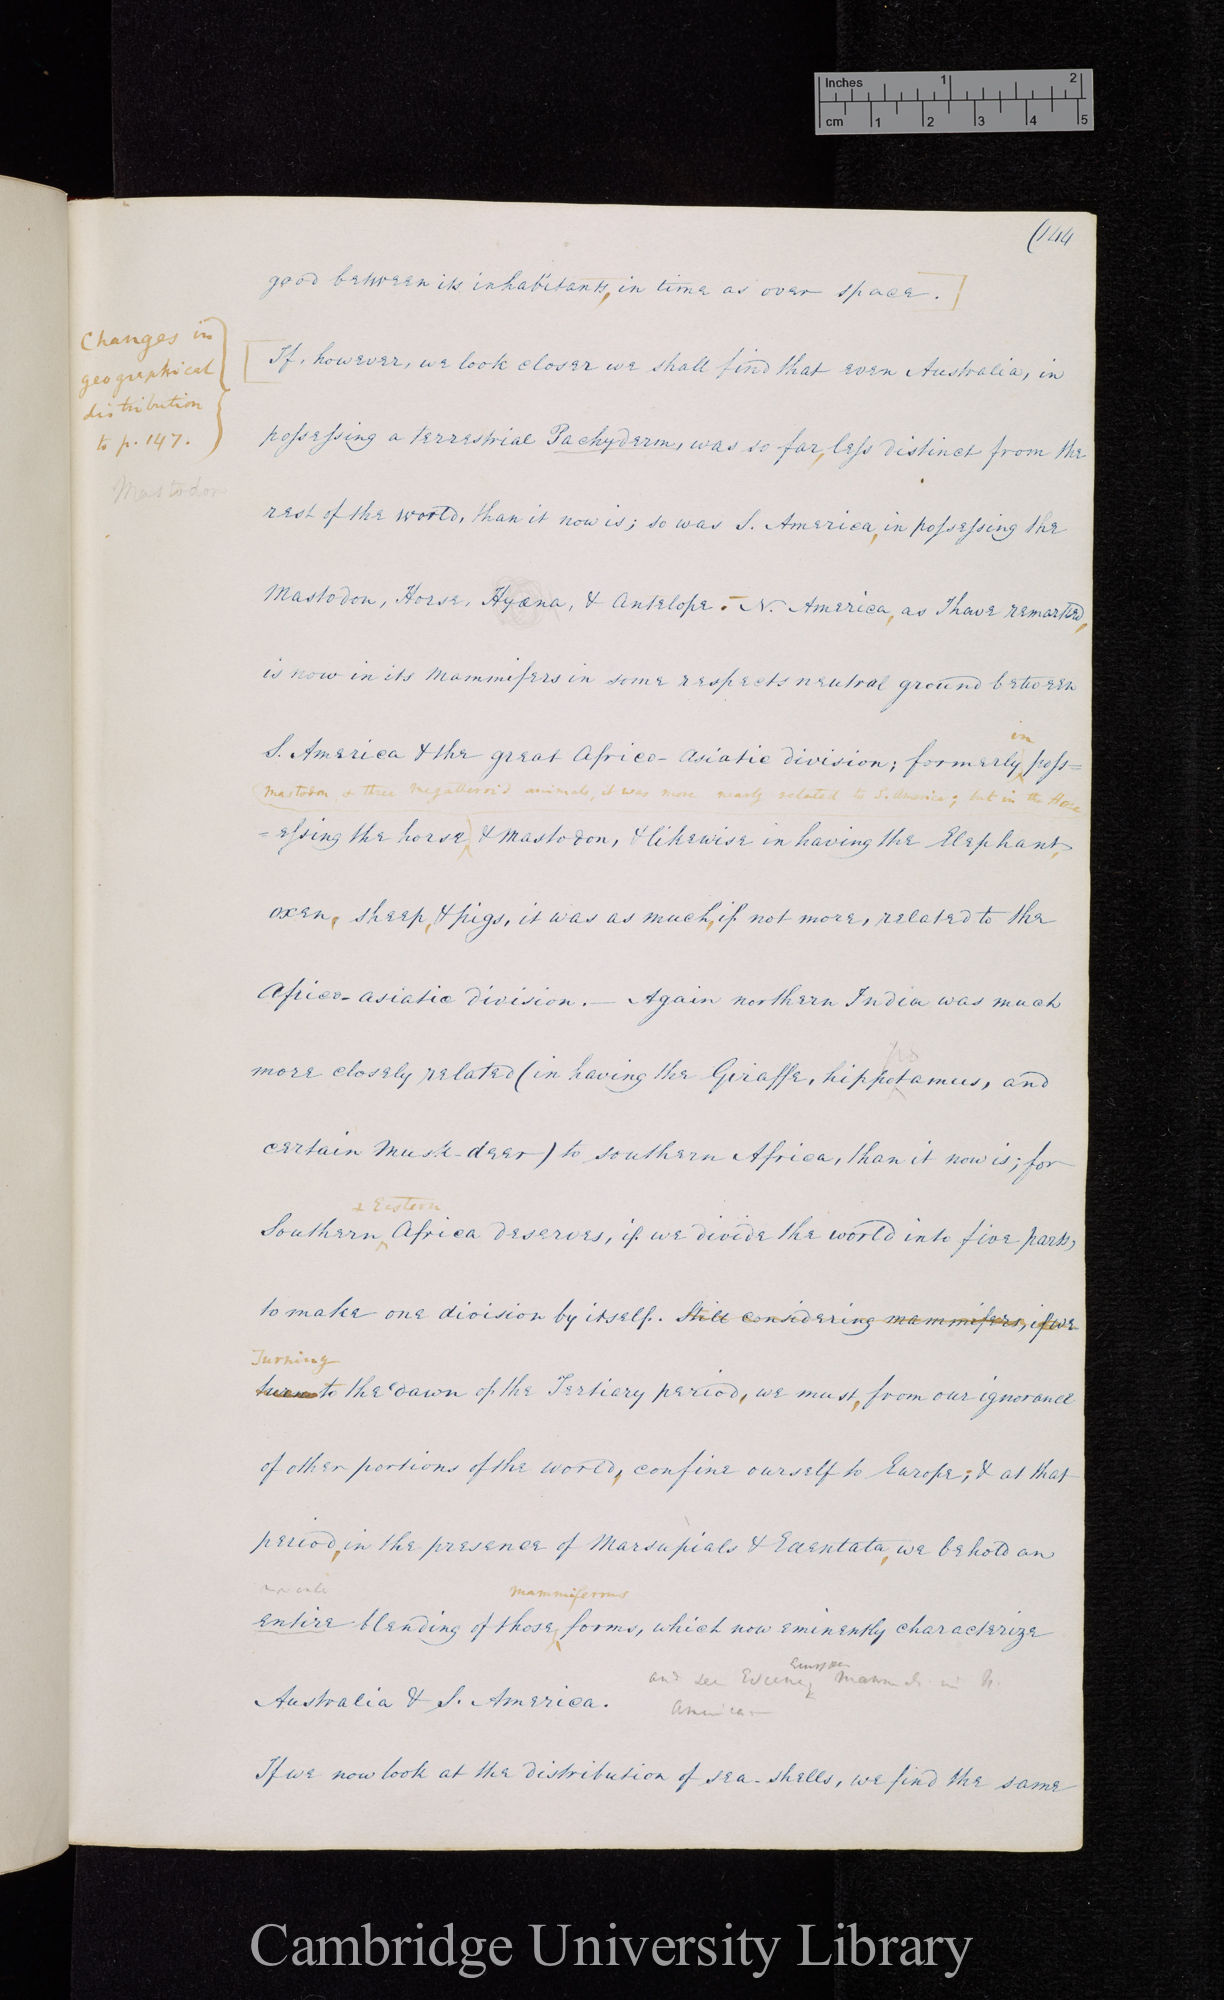 Inches 1 2
cm 1 2 3 4 5
(144
good between its inhabitants, in time as over space.]
Changes in
geographical
distribution
to p. 147.
Mastodon
[If, however, we look closer we shall find that even Australia, in
possessing a terrestrial Pachyderm, was so far, less distinct from the
rest of the world, than it now is; so was S. America, in possessing the
Mastodon, Horse, Hyæna, & Antelope. – N. America, as I have remarked,
is now in its mammifers in some respects neutral ground between
in
S. America & the great Africo-asiatic division; formerly, poss=
(mastodon & three megatheroid animals, it was more nearly related to S. America; but in the Horse
=essing the horse) & mastodon, & likewise in having the Elephant,
oxen, sheep, & pigs, it was as much, if not more, related to the
Africo-asiatic division. — Again northern India was much
po
more closely related (in having the Giraffe, hippotamus, and
certain Musk-deer) to southern Africa, than it now is; for
& Eastern
Southern Africa deserves, if we divide the world into five parts,
to make one division by itself. Still considering mammifers, if we
Turning
turn to the dawn of the Tertiary period, we must, from our ignorance
of other portions of the world, confine ourself to Europe; & at that
period, in the presence of Marsupials & Edentata, we behold an
mammiferous
entire blending of those forms, which now eminently characterize
Australia & S. America.
and see Eocene European in N.
America
If we now look at the distribution of sea-shells, we find the same
Cambridge University Library